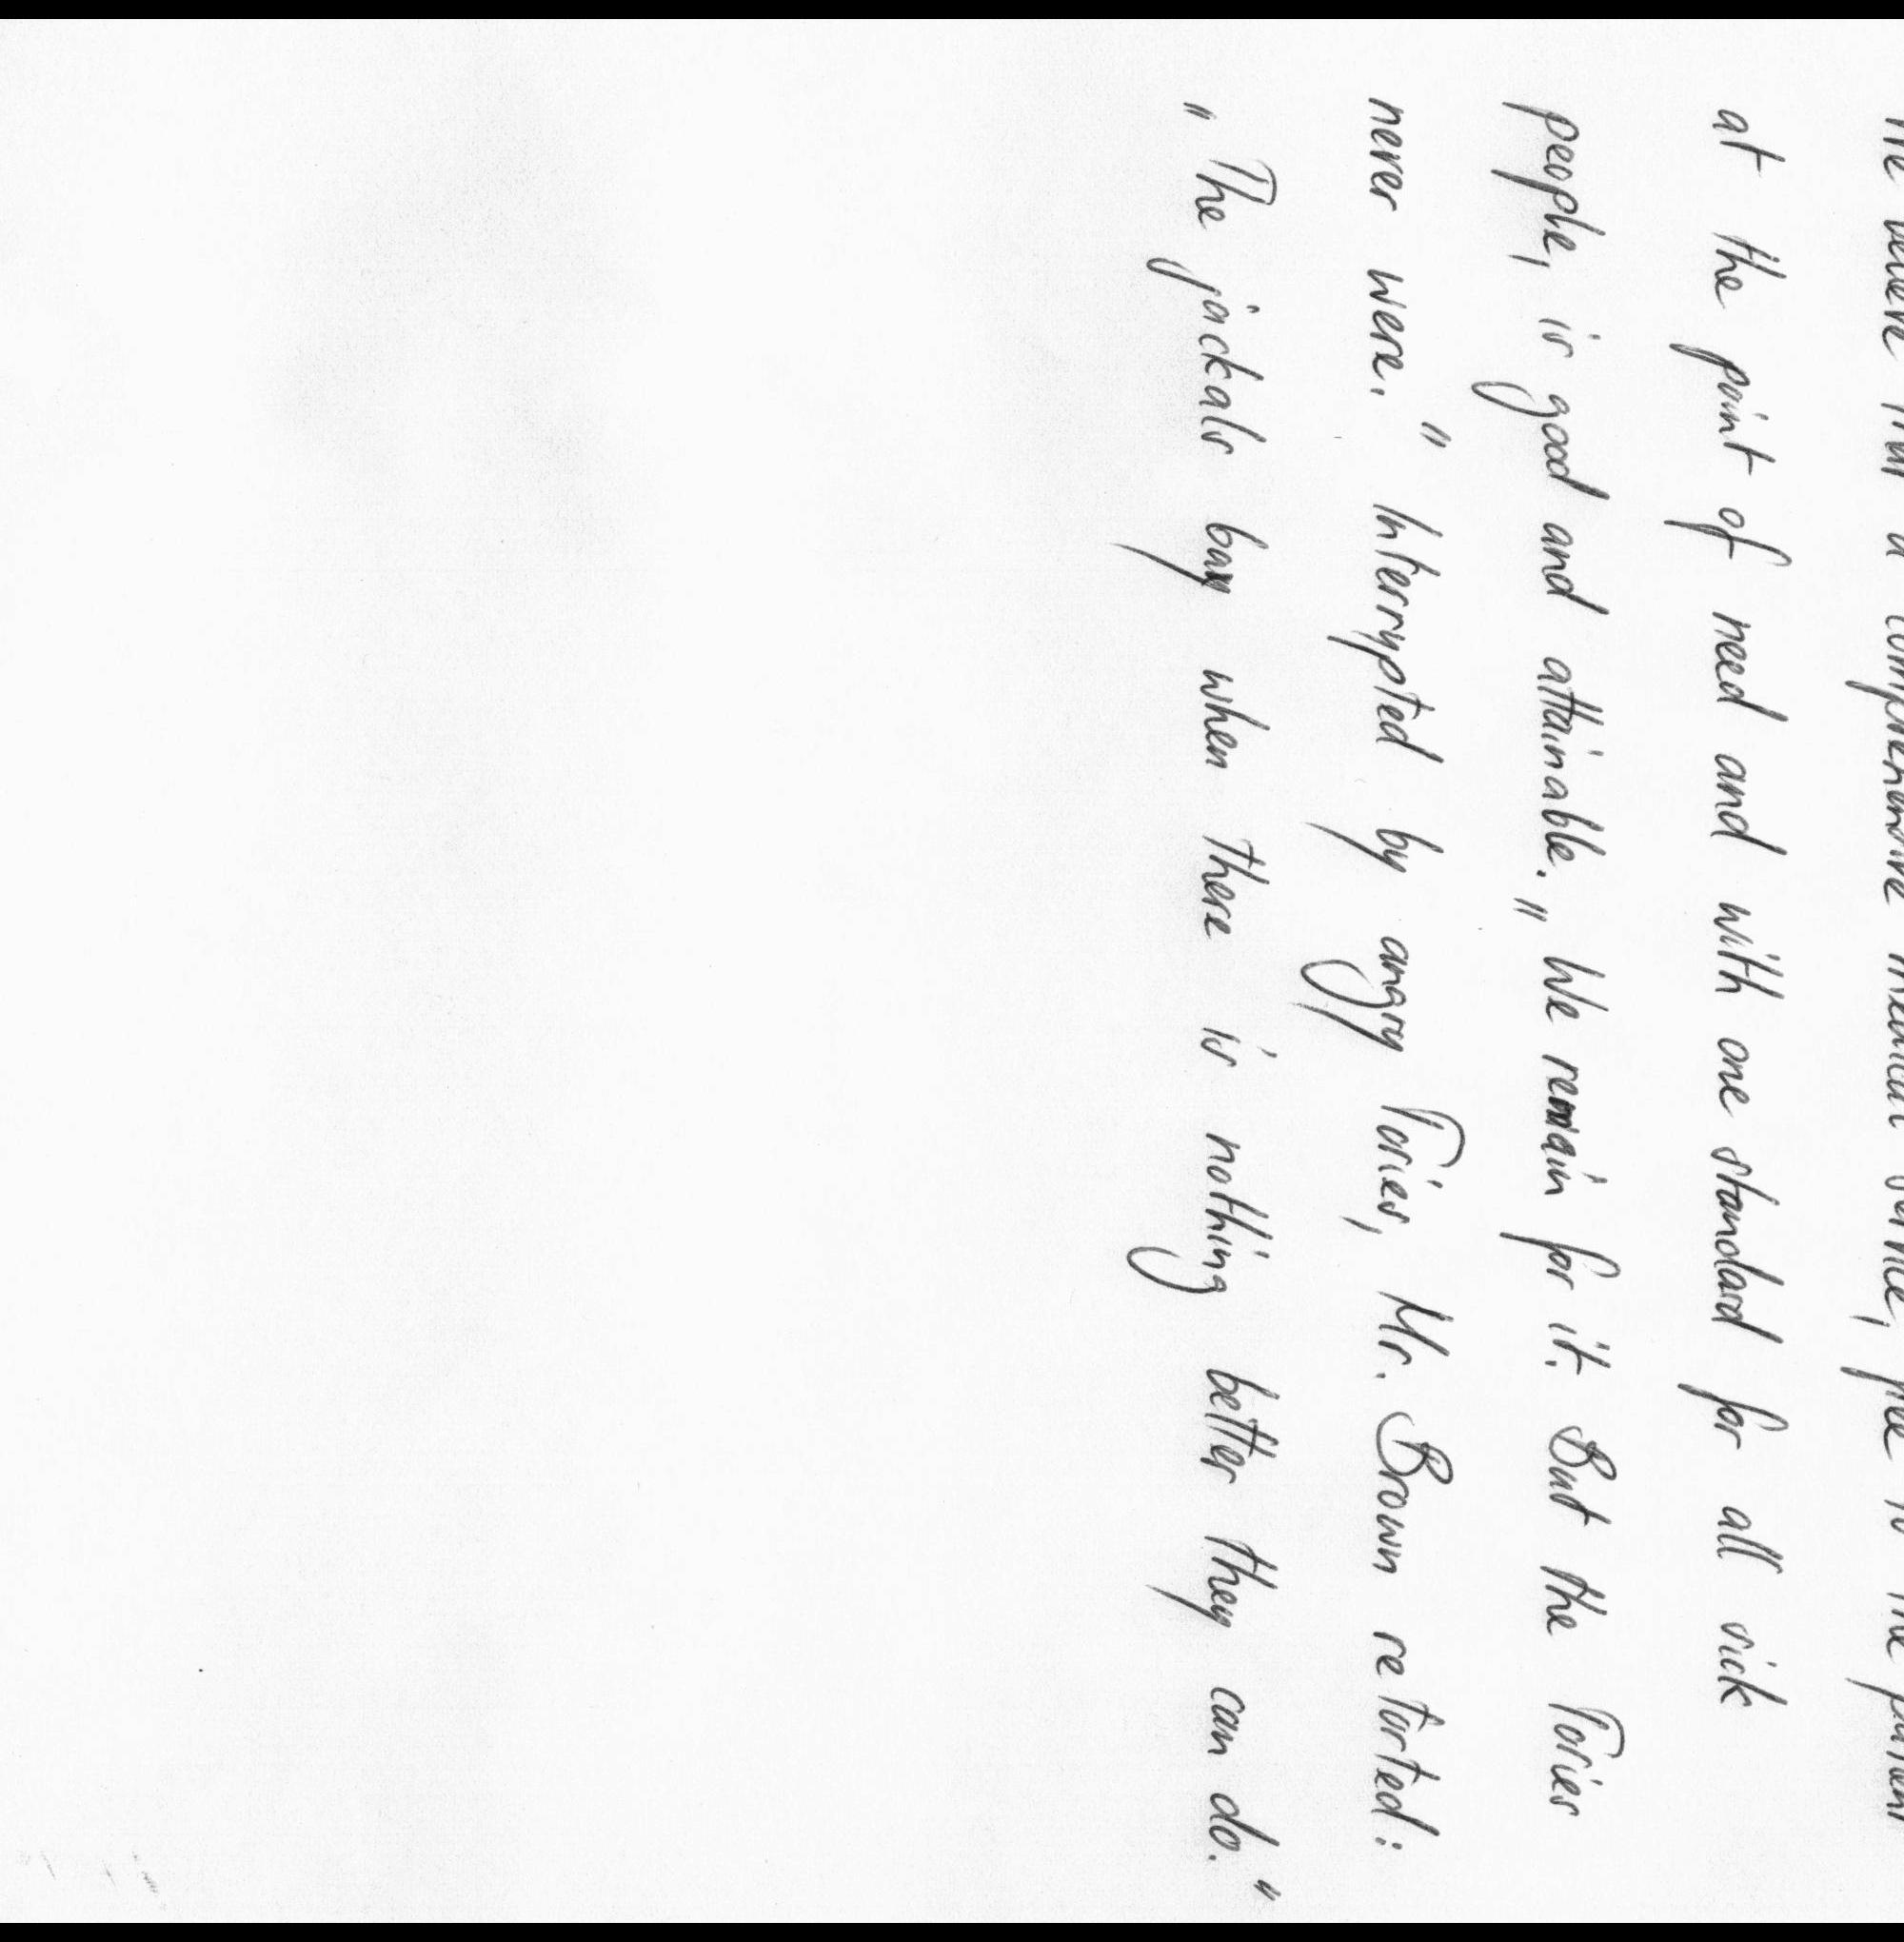 We believe that a comprehensive medical service, free to the patient
at the point of need and with one standard for all sick
people, is good and attainable. „ We remain for it. But the Tories
never were. " Interrypted by angry Tories, Mr. Brown retorted:
„ The jackals bay when there is nothing better they can do. "